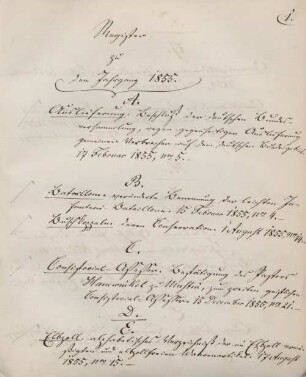 1.
Register
zu
dem Jahrgang 1855.
A.
Auslieferung. Beschluß der deutschen Bundes-
versammlung, wegen gegenseitiger Auslieferung
gemeiner Verbrecher auf dem deutschen Bundesgebiet.
17 Februar 1855, no 5.
B.
Bataillone. veränderte Benennung der leichten In-
fanterie Bataillone. 15 Februar 1855, no 4.
deren Conservation. 1 August 1855, no 14.
C.
Consistorial-Assessor. Bestätigung des Pastors
zu zum zweiten geistlichen
Consistorial-Assessor. 15 December 1855, no 21.
D.
E.
Elbzoll. alphabetisches Verzeichniß der im Elbzoll ermä-
ßigten und elbzollfreien Waaren 17 August
1855, no 15.